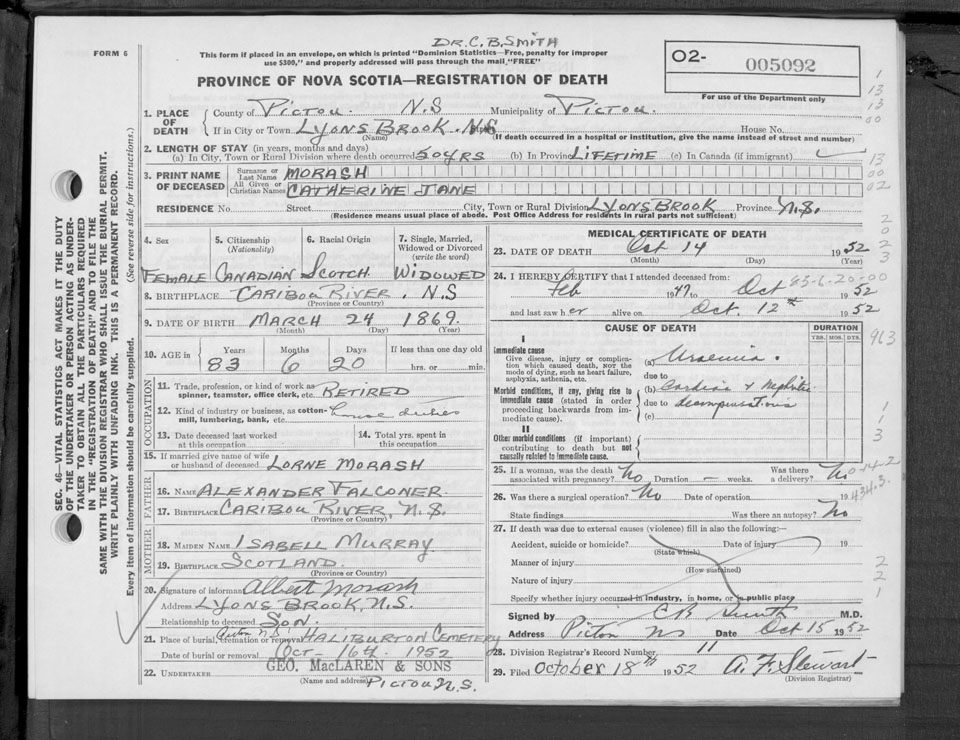 DR. C. B. SMITH
FORM 6
This form if placed in an envelope, on which is printed "Dominion Statistics—Free, penalty for improper
use $300," and properly addressed will pass through the mail "FREE"
O2- 005092
For use of the Department only
PROVINCE OF NOVA SCOTIA—REGISTRATION OF DEATH
1. PLACE OF DEATH
County of PICTOU N.S Municipality of PICTOU.
If in City or Town LYONS BROOK. N.S House No.
(Name) (If death occurred in a hospital or institution, give the name instead of street and number)
2. LENGTH OF STAY (in years, months and days)
(a) In City, Town or Rural Division where death occurred 50 YRS (b) In Province LIFETIME (c) In Canada (if immigrant)
3. PRINT NAME OF DECEASED
Surname or Last Name MORASH
All Given or Christian Names CATHERINE JANE
RESIDENCE No. Street City, Town or Rural Division LYONS BROOK Province N.S.
(Residence means usual place of abode. Post Office Address for residents in rural parts not sufficient)
4. Sex 5. Citizenship (Nationality) 6. Racial Origin 7. Single, Married, Widowed or Divorced (write the word)
FEMALE CANADIAN SCOTCH WIDOWED
8. BIRTHPLACE CARIBOU RIVER, N.S
(Province or Country)
9. DATE OF BIRTH MARCH 24 1869.
(Month) (Day) (Year)
10. AGE in Years Months Days If less than one day old
83 6 20 hrs. or min.
OCCUPATION
11. Trade, profession, or kind of work as
spinner, teamster, office clerk, etc. RETIRED
12. Kind of industry or business, as cotton-
mill, lumbering, bank, etc. house duties
13. Date deceased last worked at this occupation 14. Total yrs. spent in this occupation
15. If married give name of wife
or husband of deceased LORNE MORASH
FATHER
16. Name ALEXANDER FALCONER.
17. Birthplace CARIBOU RIVER, N.S.
(Province or Country)
MOTHER
18. Maiden Name ISABELL MURRAY
19. Birthplace SCOTLAND.
(Province or Country)
20. Signature of informant Albert Morash
Address LYONS BROOK, N.S.
Relationship to deceased SON.
21. Place of burial, cremation or removal HALIBURTON CEMETERY
Date of burial or removal OCT- 16th 1952
GEO. MacLAREN & SONS
22. UNDERTAKER
(Name and address) PICTOU N.S.
MEDICAL CERTIFICATE OF DEATH
23. DATE OF DEATH Oct 14 1952
(Month) (Day) (Year)
24. I HEREBY CERTIFY that I attended deceased from:
Feb 1947 to Oct 1952
and last saw her alive on Oct. 12th 1952
CAUSE OF DEATH DURATION
YRS. MOS. DYS.
I
Immediate cause
Give disease, injury or complica-
tion which caused death, not the
mode of dying, such as heart failure,
asphyxia, asthenia, etc.
(a) Uraemia.
due to
Morbid conditions, if any, giving rise to
immediate cause (stated in order
proceeding backwards from im-
mediate cause).
(b) Cardiac & Nephritic
due to decompensation
(c)
II
Other morbid conditions (if important)
contributing to death but not
causally related to immediate cause.
25. If a woman, was the death Was there
associated with pregnancy? No Duration — weeks. a delivery? No
26. Was there a surgical operation? No Date of operation 19
State findings Was there an autopsy? No
27. If death was due to external causes (violence) fill in also the following:—
Accident, suicide or homicide? Date of injury 19
(State which)
Manner of injury
(How sustained)
Nature of injury
Specify whether injury occurred in industry, in home, or in public place
Signed by C B Smith M.D.
Address Pictou NS Date Oct 15 1952
28. Division Registrar's Record Number 11
29. Filed October 18th 1952 A. F. Stewart
(Division Registrar)
SEC. 46—VITAL STATISTICS ACT MAKES IT THE DUTY
OF THE UNDERTAKER OR PERSON ACTING AS UNDER-
TAKER TO OBTAIN ALL THE PARTICULARS REQUIRED
IN THE "REGISTRATION OF DEATH" AND TO FILE THE
SAME WITH THE DIVISION REGISTRAR WHO SHALL ISSUE THE BURIAL PERMIT.
WRITE PLAINLY WITH UNFADING INK. THIS IS A PERMANENT RECORD.
Every item of information should be carefully supplied. (See reverse side for instructions.)